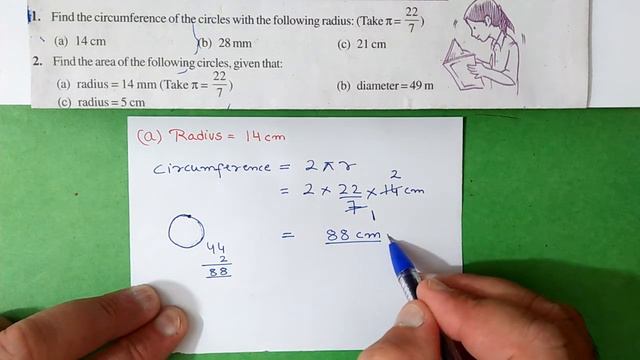 1. Find the circumference of the circles with the following radius: (Take π = 22/7)
(a) 14 cm (b) 28 mm (c) 21 cm
2. Find the area of the following circles, given that:
(a) radius = 14 mm (Take π = 22/7) (b) diameter = 49 m
(c) radius = 5 cm
(a) Radius = 14 cm
Circumference = 2 π r
2
= 2 × 22/7 × 14 cm
1
= 88 cm
44
2
88